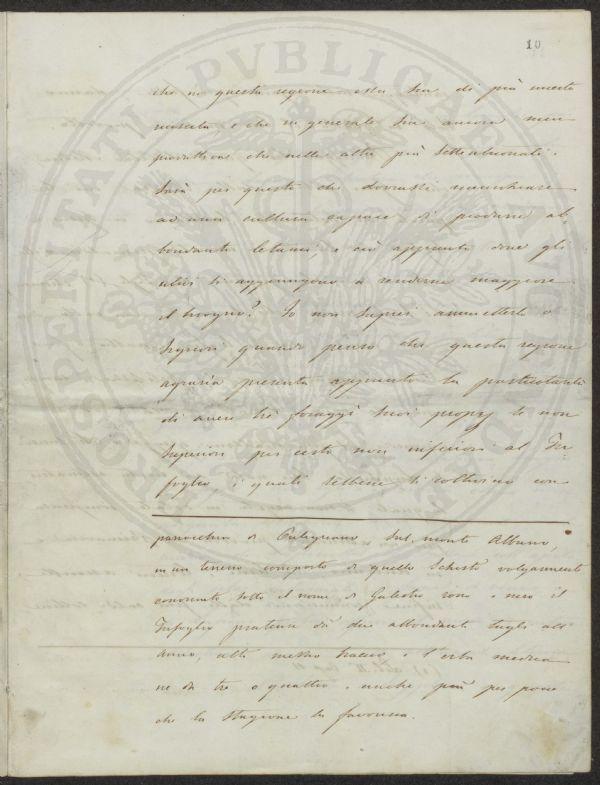 10
che in questa regione essa sia di più incerta
riuscita e che in generale sia ancora meno
produttiva che nelle altre più settentrionali.
Sarà per questo che dovrassi rinunciare
ad una cultura capace di produrre ab=
bondante letame, e ciò appunto dove gli
ulivi si aggiungono a renderne maggiore
il bisogno? Io non saprei ammetterlo o
Signori quando penso che questa regione
agraria presenta appunto la particolarità
di avere tre foraggi suoi proprj se non
superiori per certo non inferiori al Tri=
foglio, i quali sebbene si coltivino con
parrocchia di sul monte Albano,
in un terreno composto di quello Schisto volgarmente
conosciuto sotto il nome di Galestro roso e nero il
Trifoglio pratense dà due abbondanti tagli all'
anno, alti mezzo braccio e l'erba medica
ne dà tre o quattro e anche più per poco
che la stagione la favorisca.